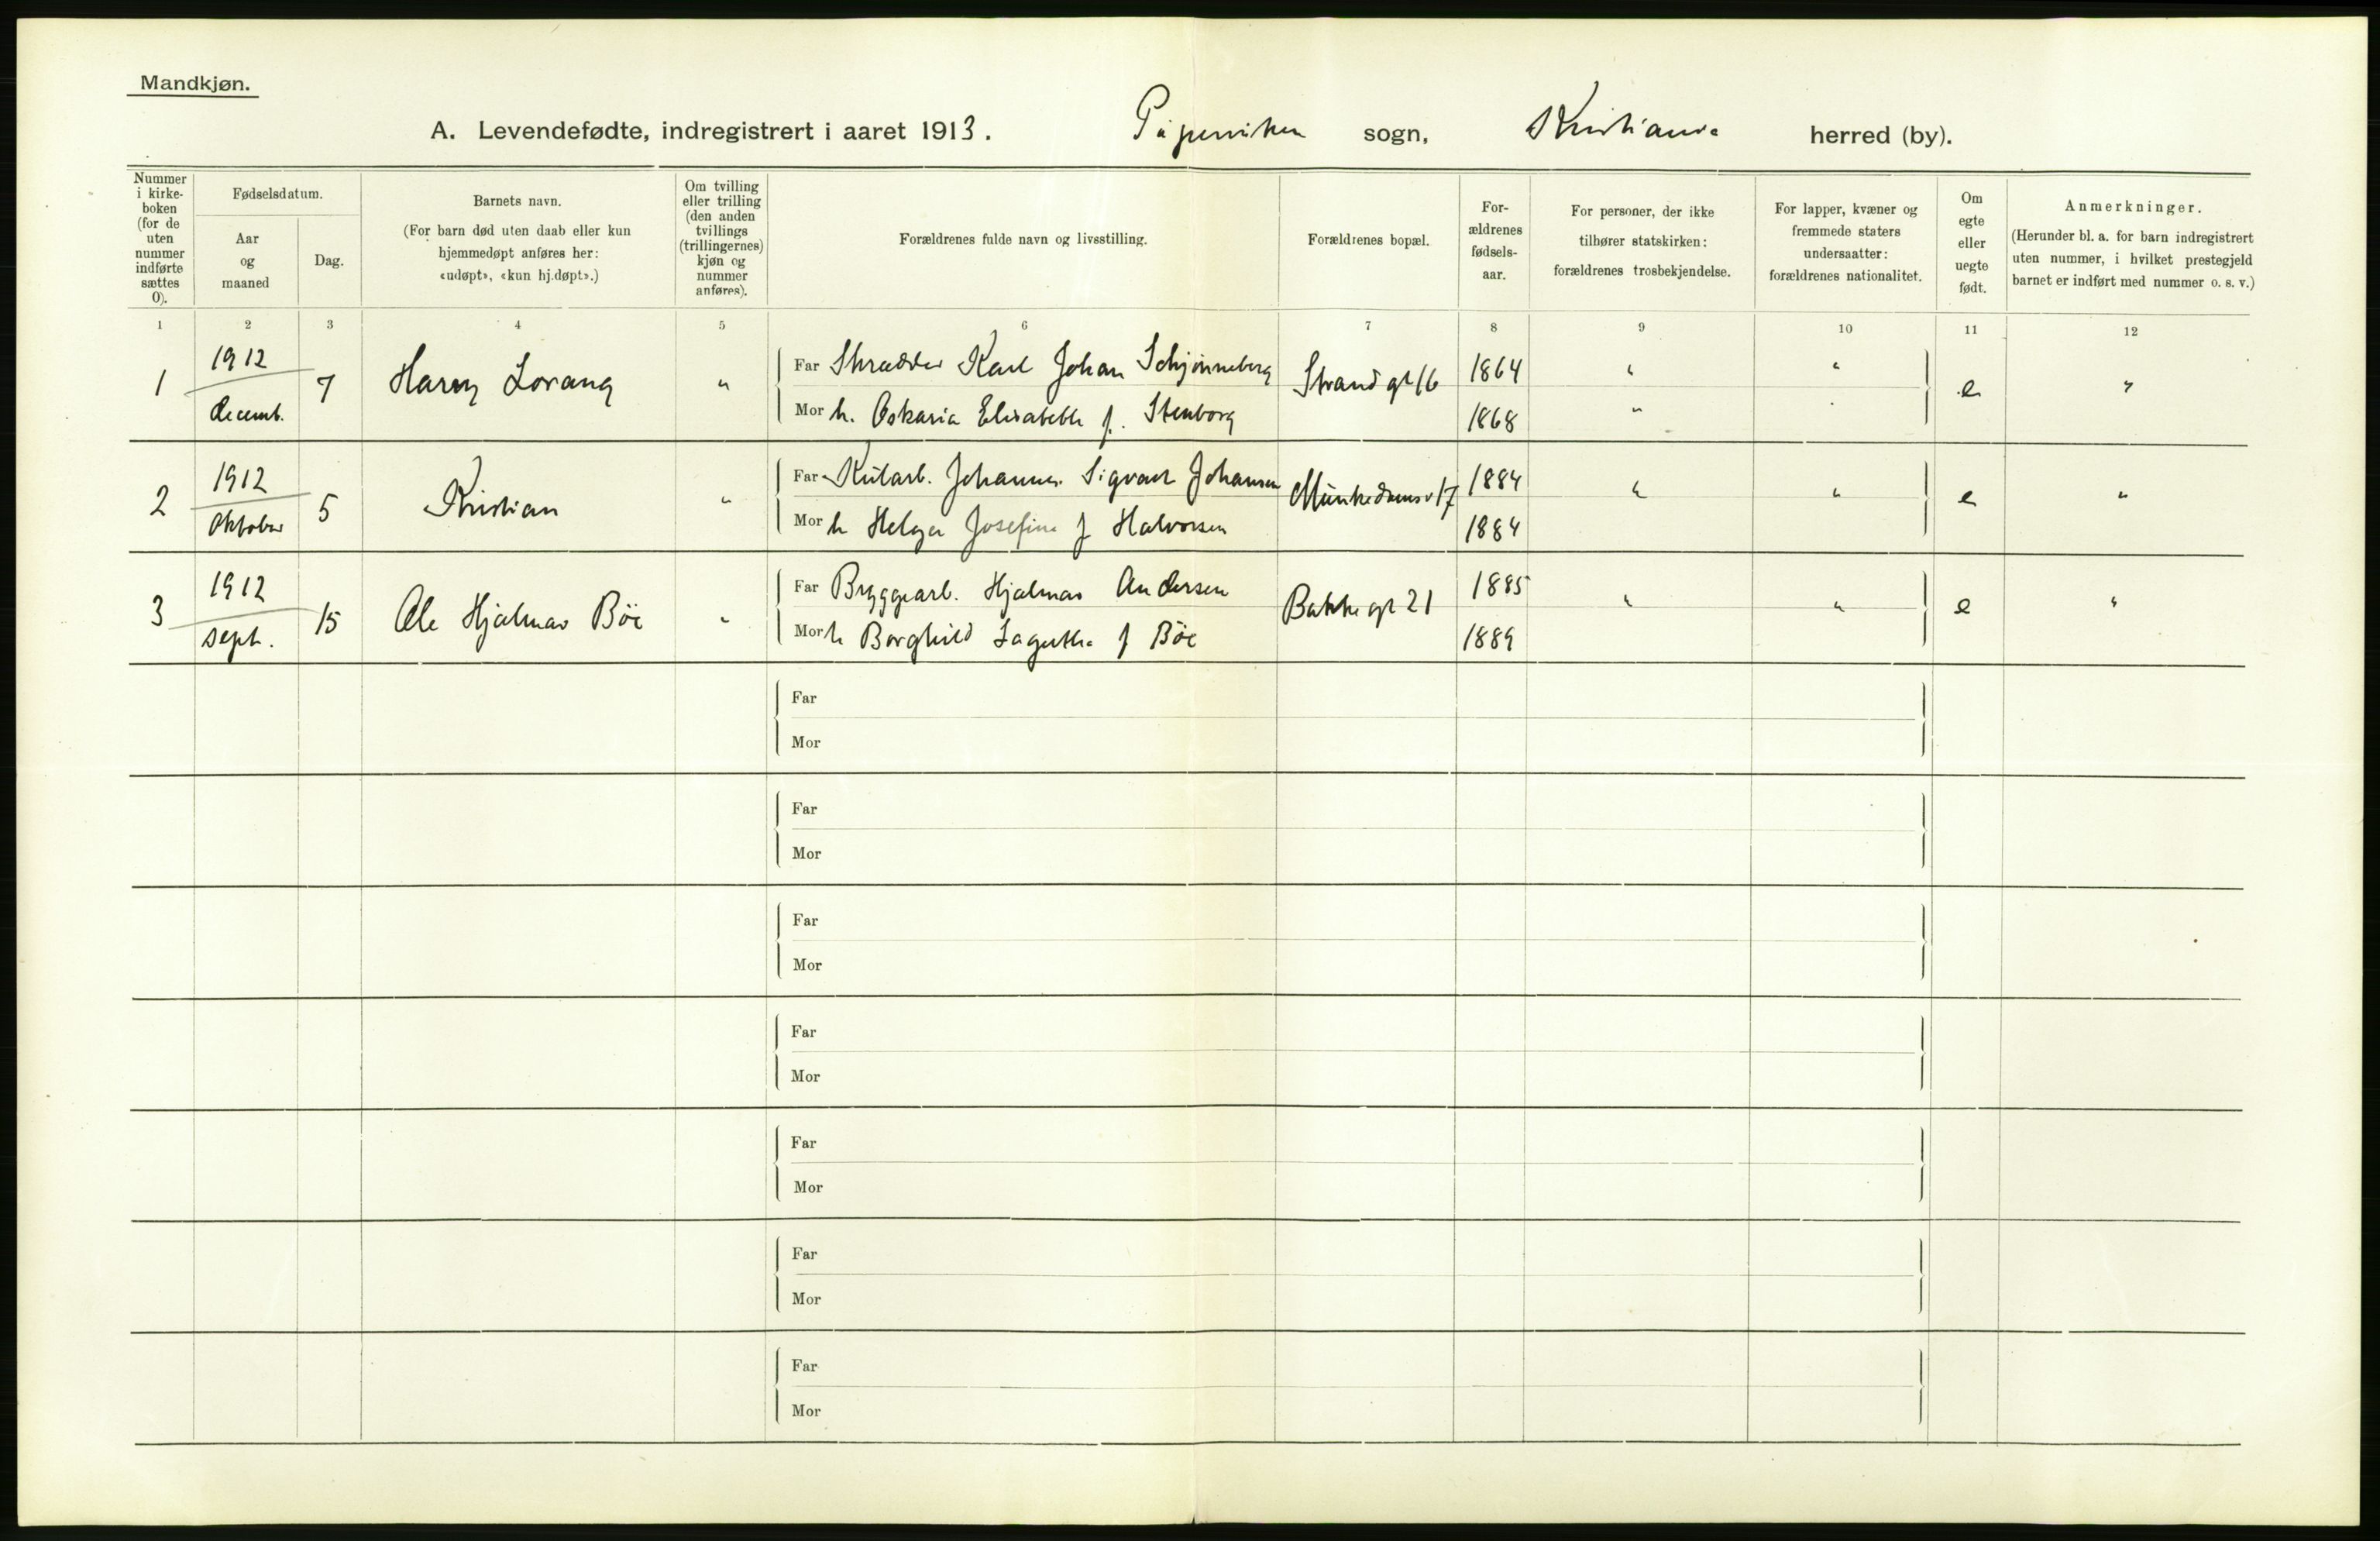 Mandkjøn.
A. Levendefødte, indregistrert i aaret 1913. Piperviken sogn, Kristiania herred (by).
Nummer i kirke-boken (for de uten nummer indførte sættes 0).
Fødselsdatum.
Aar og maaned
Dag.
Barnets navn.
(For barn død uten daab eller kun hjemmedøpt anføres her: «udøpt», «kun hj.døpt».)
Om tvilling eller trilling (den anden tvillings (trillingernes) kjøn og nummer anføres).
Forældrenes fulde navn og livsstilling.
Forældrenes bopæl.
For-ældrenes fødsels-aar.
For personer, der ikke tilhører statskirken: forældrenes trosbekjendelse.
For lapper, kvæner og fremmede staters undersaatter: forældrenes nationalitet.
Om egte eller uegte født.
Anmerkninger.
(Herunder bl. a. for barn indregistrert uten nummer, i hvilket prestegjeld barnet er indført med nummer o. s. v.)
1 2 3 4 5 6 7 8 9 10 11 12
1 1912 decemb. 7 Harry Lorang " Far Skrædder Karl Johan Schjønneberg Strand gt 16 1864 " " e "
Mor h. Oskaria Elisabeth f. Stenborg 1868 "
2 1912 Oktober 5 Kristian " Far Kularb. Johannes Sigvart Johansen Munkedamsv 17 1884 " " e "
Mor h Helga Josefine f Halvorsen 1884
3 1912 Sept. 15 Ole Hjalmar Böe " Far Bryggearb. Hjalmar Andersen Bakke gt 21 1885 " " e "
Mor h Borghild Lagertha f Böe 1889
Far
Mor
Far
Mor
Far
Mor
Far
Mor
Far
Mor
Far
Mor
Far
Mor